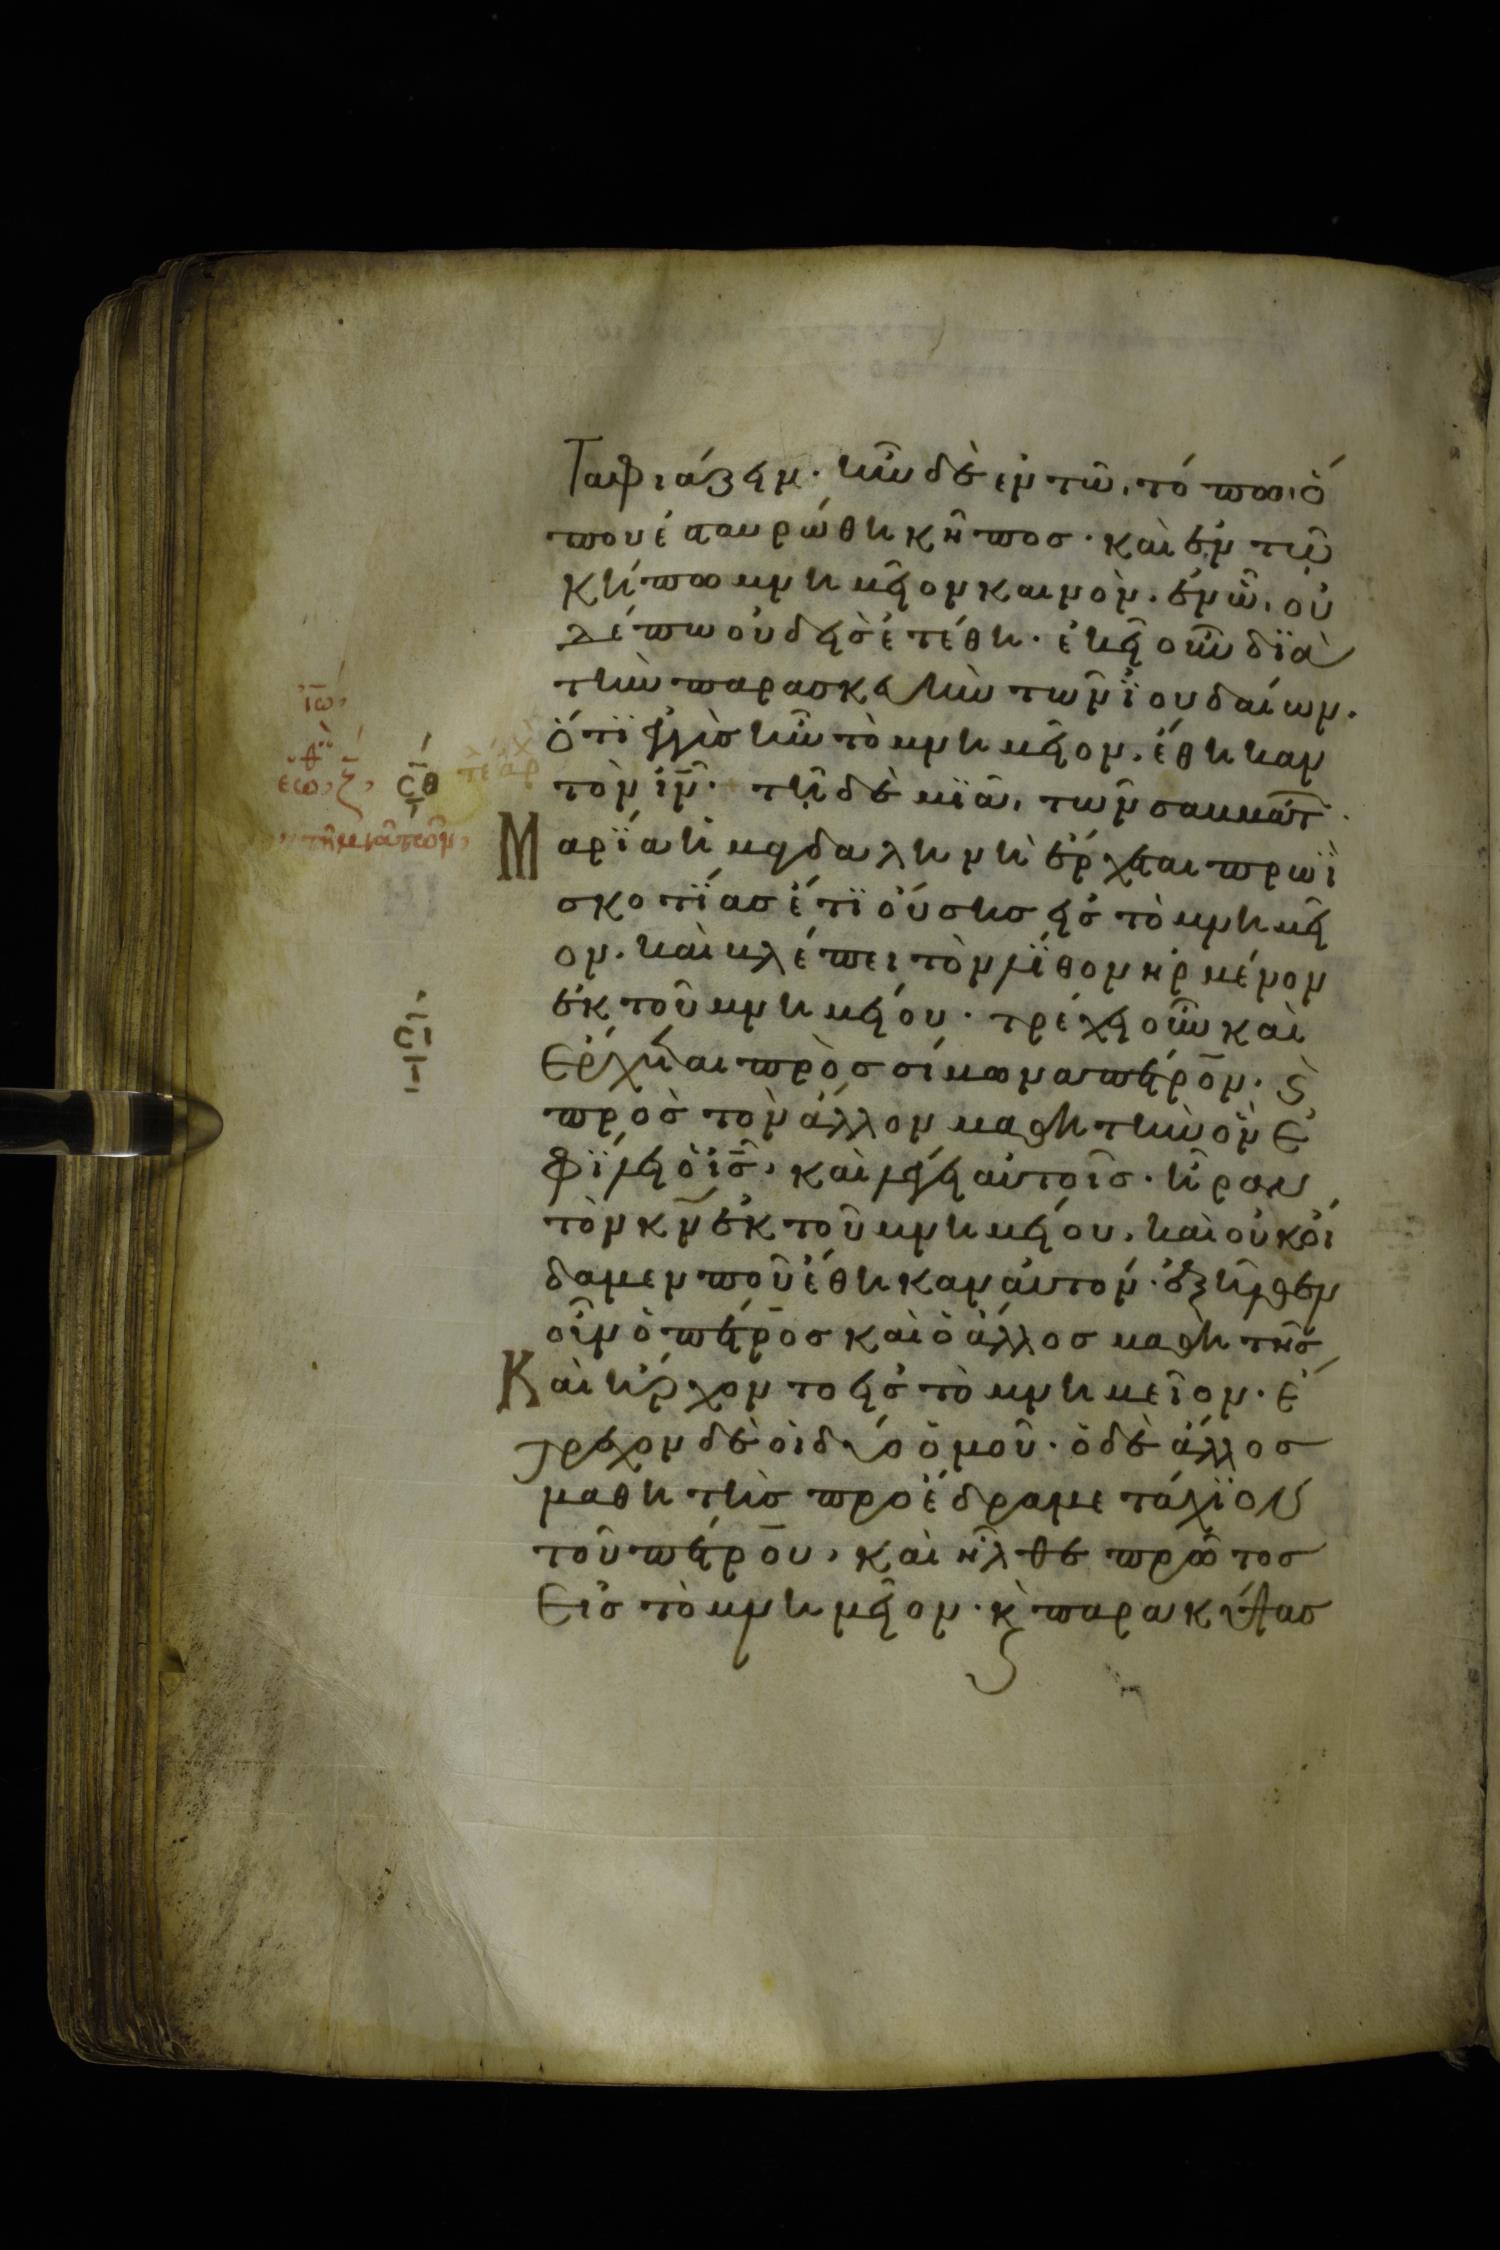 ταφιάζειν· ἦν δὲ ἐν τῶ, τόπω, ὅ
που ἐσταυρώθη κῆπος· καὶ ἐν τῶ
κήπω μνημεῖον καινὸν. ἐν ὧ, οὐ
δέπω οὐδεὶς ἐτέθη· ἐκεῖ οὖν δϊὰ
τὴν παρασκευὴν τῶν ϊουδαίων.
ὅτϊ ἐγγὺς ἦν τὸ μνημεῖον. ἔθηκαν
τὸν ιν̅· τῆ δὲ μϊᾶ, τῶν σαββάτ
Μαρϊα ἡ μαγδαληνὴ ἔρχεται πρωῒ
σκοτϊας ἔτϊ οὔσης εἰς τὸ μνημεῖ
ον. καὶ βλέπει τὸν λϊθον ἠρμένον
ἐκ τοῦ μνημείου· τρέχει οὖν καὶ
ἔρχεται πρὸς σίμωνα πέτρον· ϗ
πρὸς τὸν ἄλλον μαθητὴν ὃν ἐ
φϊλει ὁ ις̅, καὶ λέγει αὐτοῖς· ἦραν
τὸν κν̅ ἐκ τοῦ μνημείου, καὶ οὐκ οἴ
δαμεν ποῦ ἔθηκαν αὐτόν· ἐξῆλθεν
οὖν ὁ πέτρος καὶ ὁ ἄλλος μαθητής
Καὶ ἤρχοντο εἰς τὸ μνημεῖον· ἔ
τρεχον δὲ οἱ δύο ὁμοῦ· ὁ δὲ ἄλλος
μαθητὴς προέδραμε τάχϊον
τοῦ πέτρου, καὶ ἦλθε πρῶτος
εἰς τὸ μνημεῖον· ϗ παρακύψας
ιω̅
εω, ζ,
σ̅θ
σ̅ι